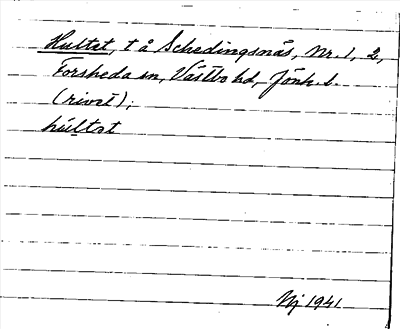 Hultet, t å Schedingsnäs, Nr. 1, 2,
Forsheda sn, Västbo hd, Jönk. l.
(rivet);
húltət
Nj 1941